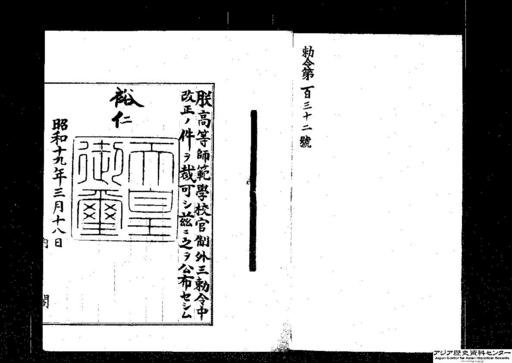 勅令第百三十二號
朕高等師範學校官制外三勅令中
改正ノ件ヲ裁可シ茲ニ之ヲ公布セシム
裕仁
天皇
御璽
昭和十九年三月十八日
内閣
アジア歴史資料センター
Japan Center for Asian Historical Records